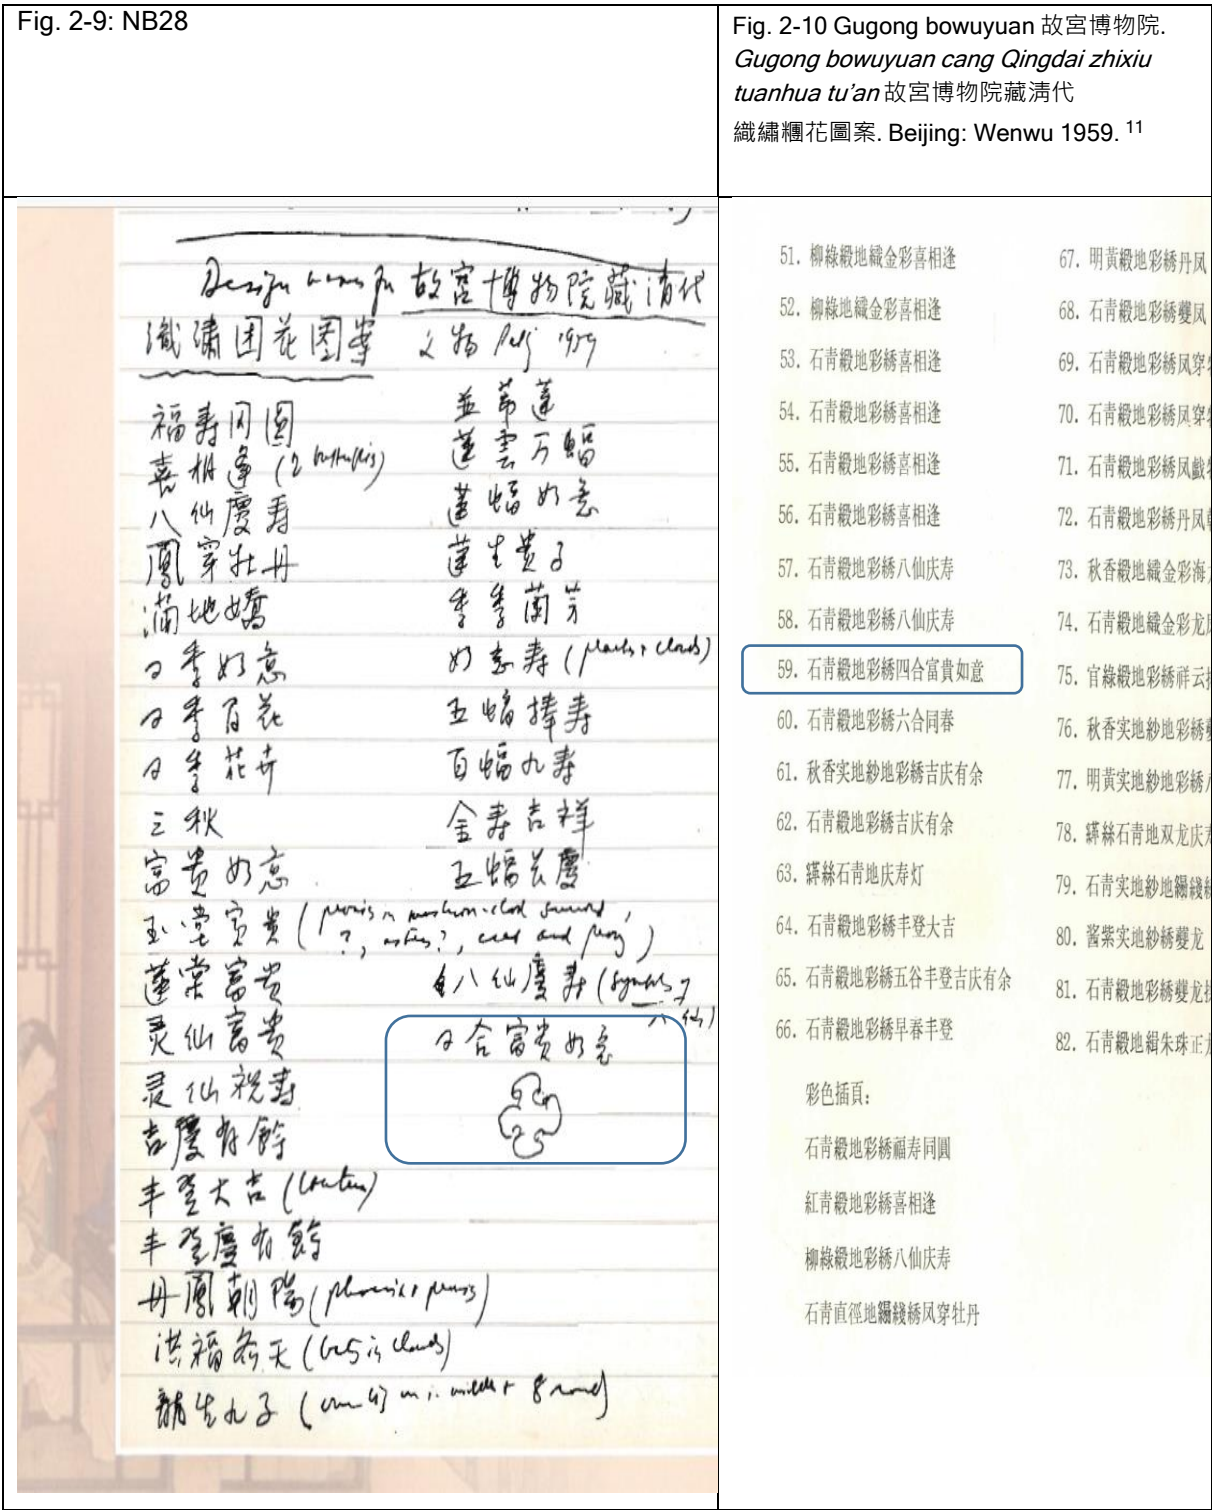 Fig. 2-9: NB28
Fig. 2-10 Gugong bowuyuan 故宮博物院.
Gugong bowuyuan cang Qingdai zhixiu
tuanhua tu'an 故宮博物院藏清代
織繡糰花圖案. Beijing: Wenwu 1959. 11
Design 故宮博物院藏清代
織繡团花图案 文物 1959
福寿同圆
喜相逢 (2 butterflies)
八仙慶寿
鳳穿牡丹
滿地嬌
四季如意
四季百花
四季花卉
三秋
富贵如意
玉堂富贵 (
? , asters?, and )
蓮棠富贵
灵仙富贵
灵仙祝寿
吉慶有餘
丰登大吉 (
丰登慶有餘
丹鳳朝陽 (phoenix + )
洪福齐天 ( in clouds)
龍生九子 ( in middle + 8 round)
並蒂蓮
蓮雲万蝠
蓮蝠如意
蓮生贵子
季季蘭芳
如意寿 (peaches + clouds)
五蝠捧寿
百蝠九寿
金寿吉祥
五蝠长慶
八仙慶寿 (symbols of
八仙)
四合富贵如意
51. 柳綠緞地織金彩喜相逢
52. 柳綠地織金彩喜相逢
53. 石青緞地彩綉喜相逢
54. 石青緞地彩綉喜相逢
55. 石青緞地彩綉喜相逢
56. 石青緞地彩綉喜相逢
57. 石青緞地彩綉八仙庆寿
58. 石青緞地彩綉八仙庆寿
59. 石青緞地彩綉四合富貴如意
60. 石青緞地彩綉六合同春
61. 秋香实地紗地彩綉吉庆有余
62. 石青緞地彩綉吉庆有余
63. 緙絲石青地庆寿灯
64. 石青緞地彩綉丰登大吉
65. 石青緞地彩綉五谷丰登吉庆有余
66. 石青緞地彩綉早春丰登
彩色插頁：
石青緞地彩綉福寿同圓
紅青緞地彩綉喜相逢
柳綠緞地彩綉八仙庆寿
石青直徑地綉凤穿牡丹
67. 明黃緞地彩綉丹凤
68. 石青緞地彩綉夔凤
69. 石青緞地彩綉凤穿
70. 石青緞地彩綉凤穿
71. 石青緞地彩綉凤戲
72. 石青緞地彩綉丹凤
73. 秋香緞地織金彩海
74. 石青緞地織金彩龙
75. 官綠緞地彩綉祥云
76. 秋香实地紗地彩綉
77. 明黃实地紗地彩綉
78. 緙絲石青地双龙庆
79. 石青实地紗地
80. 酱紫实地紗綉夔龙
81. 石青緞地彩綉夔龙
82. 石青緞地緝朱珠正